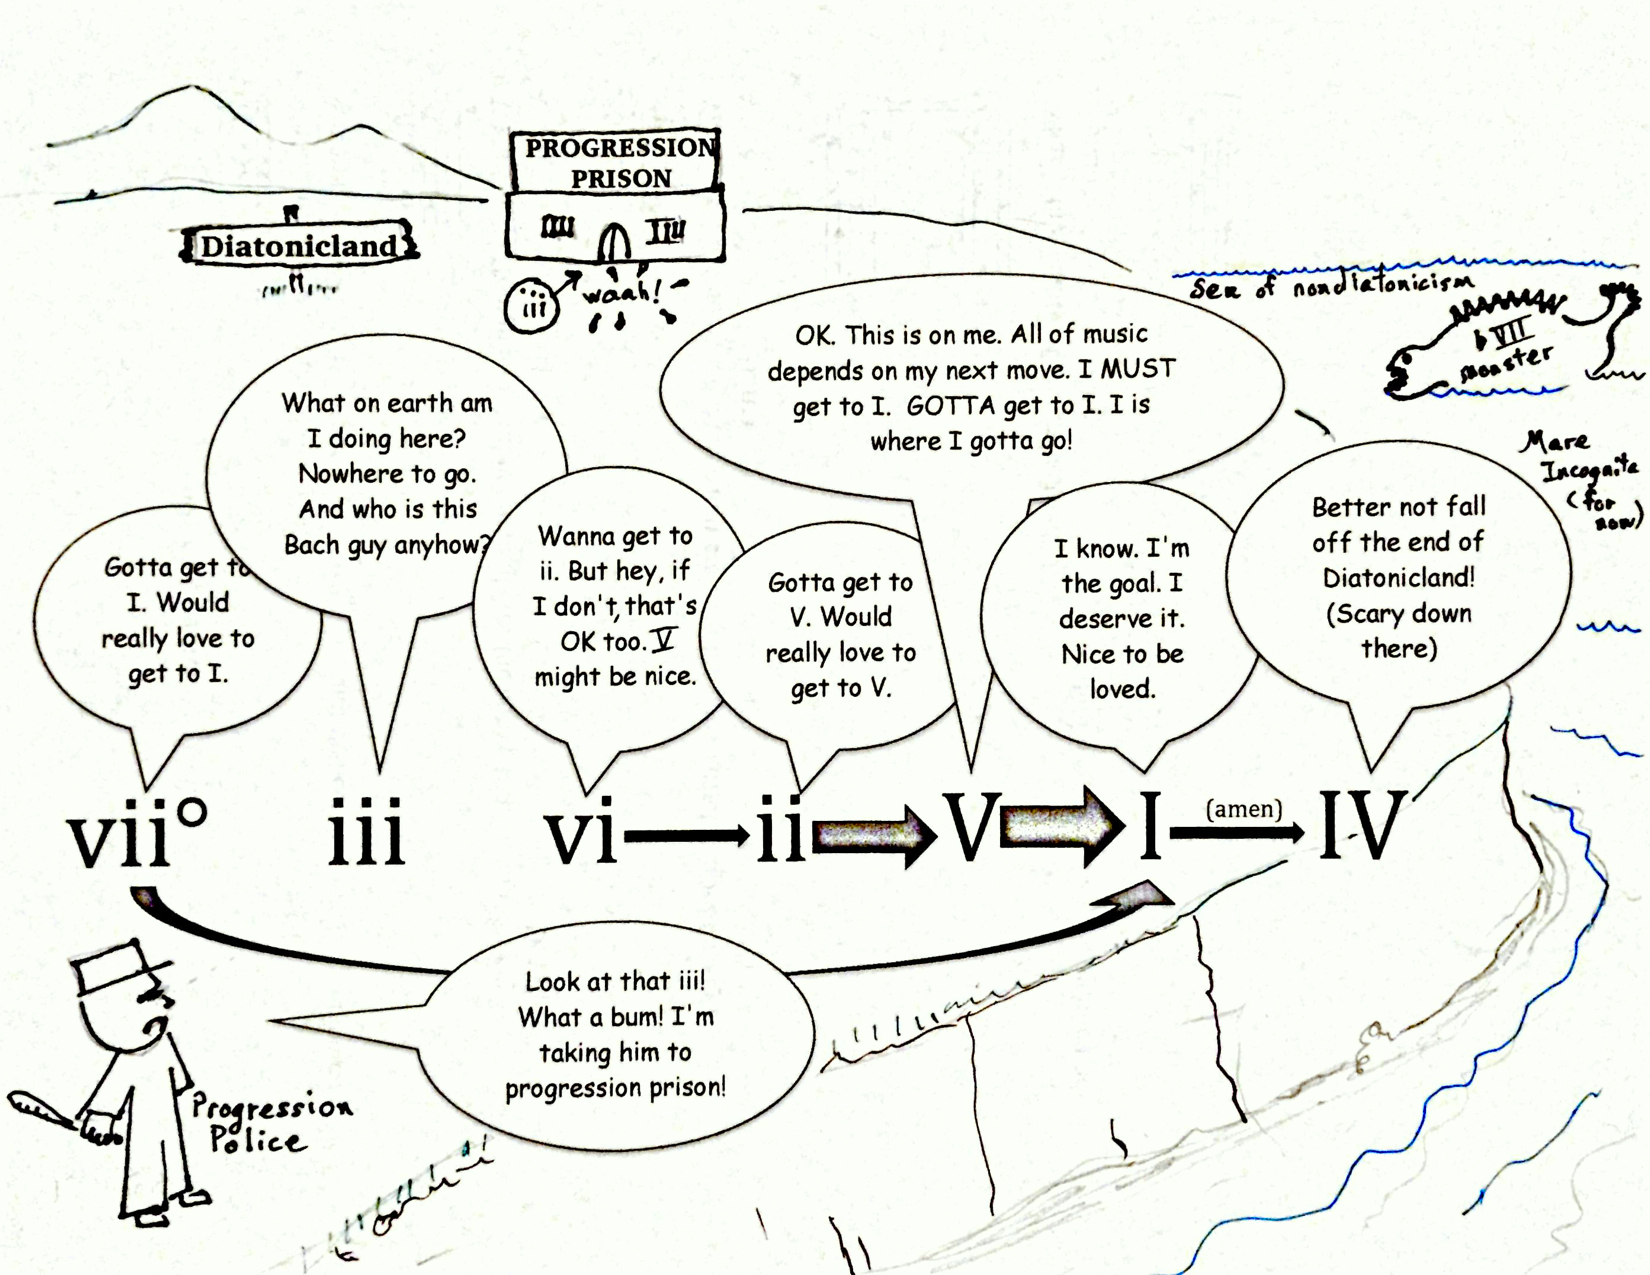 PROGRESSION
PRISON
Diatonicland
iii
waah!
Sea of nondiatonicism
bVII
monster
Mare
Incognita
(for
now)
OK. This is on me. All of music
depends on my next move. I MUST
get to I. GOTTA get to I. I is
where I gotta go!
What on earth am
I doing here?
Nowhere to go.
And who is this
Bach guy anyhow?
Gotta get to
I. Would
really love to
get to I.
Wanna get to
ii. But hey, if
I don't, that's
OK too. V
might be nice.
Gotta get to
V. Would
really love to
get to V.
I know. I'm
the goal. I
deserve it.
Nice to be
loved.
Better not fall
off the end of
Diatonicland!
(Scary down
there)
vii° iii vi ii V I (amen) IV
Look at that iii!
What a bum! I'm
taking him to
progression prison!
Progression
Police